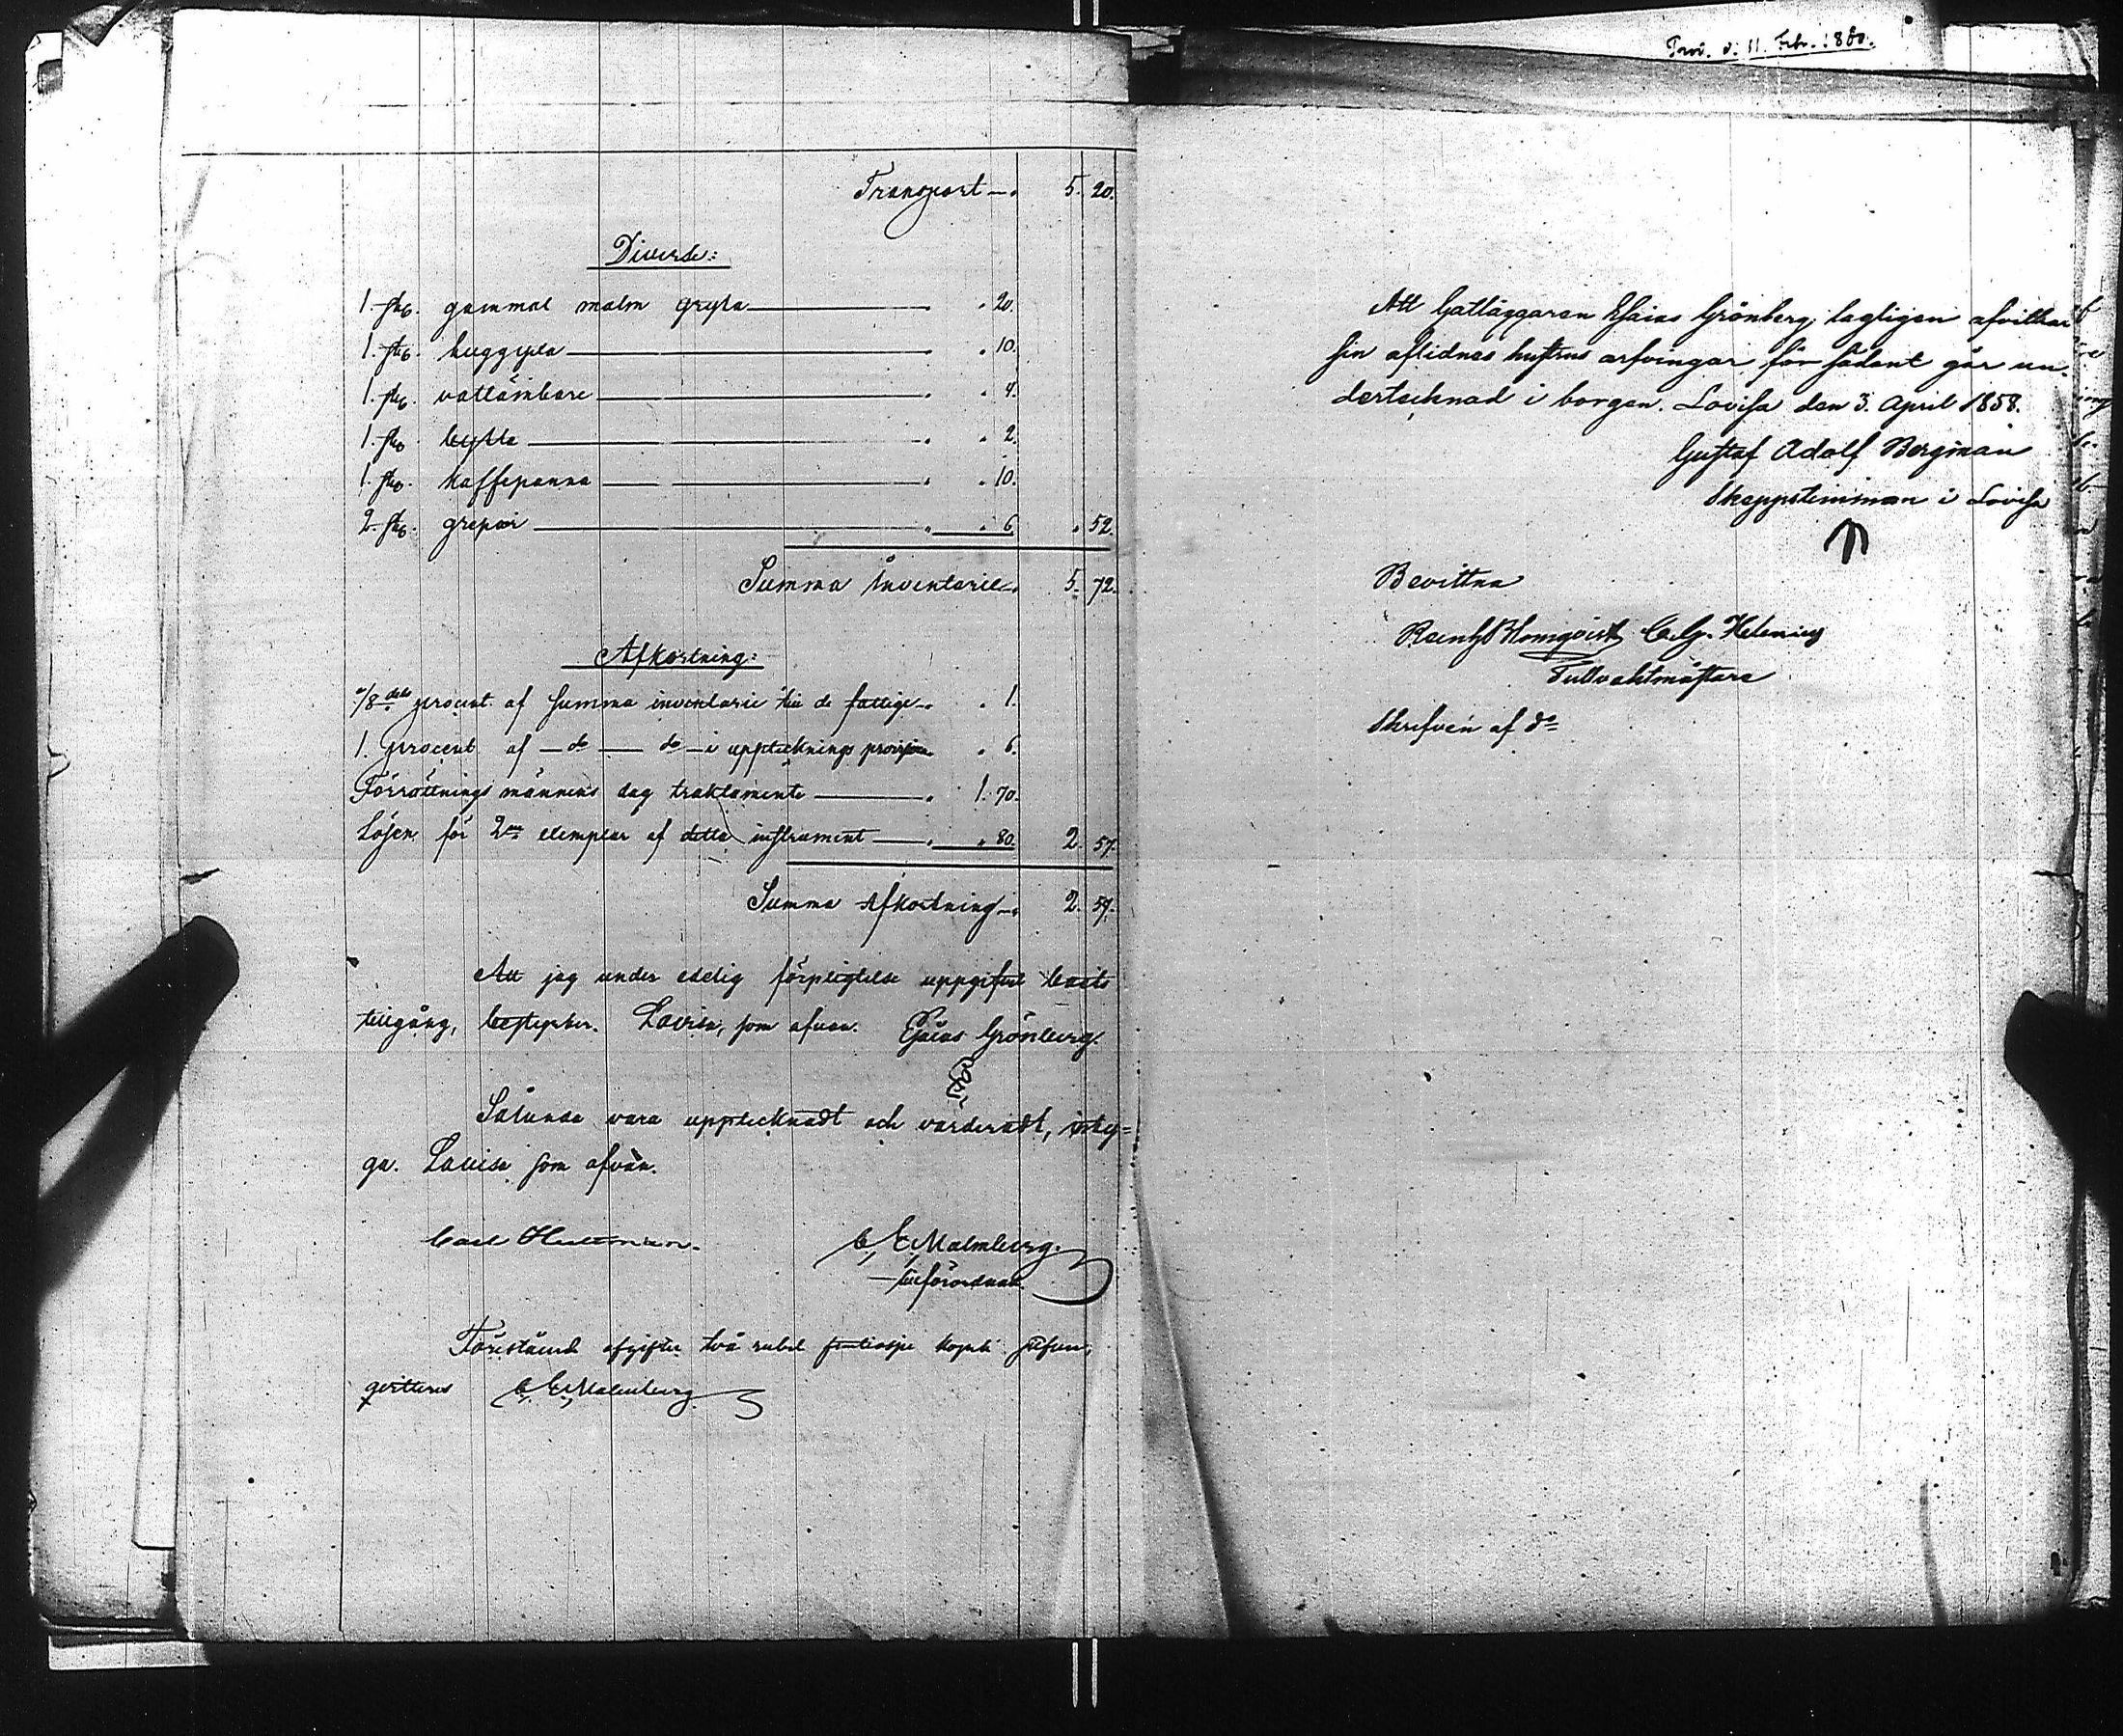 Transport — . 5. 20.
Diverse:
1. stk. gammal malm gryta . 20.
1. stk. huggyxa . . 10.
1. stk. vattämbare . . 4.
1. stk. bytta . . 2.
1. stk. kaffepanna . . 10.
2. stk. grepar . . 6. . 52.
Summa Inventarie . 5. 72.
Afkortning:
1/8 dels procent af Summa inventarie till de fattige . . 1.
1. procent af — do — do — i upptecknings provision . 6.
Förrättnings männens dag traktamente . 1. 70.
Lösen för 2ne exemplar af detta instrument . . 80. 2. 57.
Summa Afkortning . 2. 57.
Att jag under edelig förpligtelse uppgifvit boets
tillgång, bestyrker. Lovisa, som ofvan. Esaias Grönberg.
Sålunda vara upptecknadt och värderadt, intyg=
ga. Lovisa som ofvan.
Carl C. E. Malmberg.
tillförordnad.
Förestående afgifter två rubel femtiosju kopek silfver,
qvitteras C. E. Malmberg
Prod. d. 11. Febr. 1880.
Att Gatläggaren Esaias Grönberg lagligen afvittrar
sin aflidnas hustrus arfvingar för sådant går un-
dertecknad i borgen. Lovisa den 3. April 1858.
Gustaf Adolf Bergman
Skeppstimman i Lovisa
Bevittna
Reinh Blomqvist C. G. Helenius
Tullvaktmästare
Skrifven af do